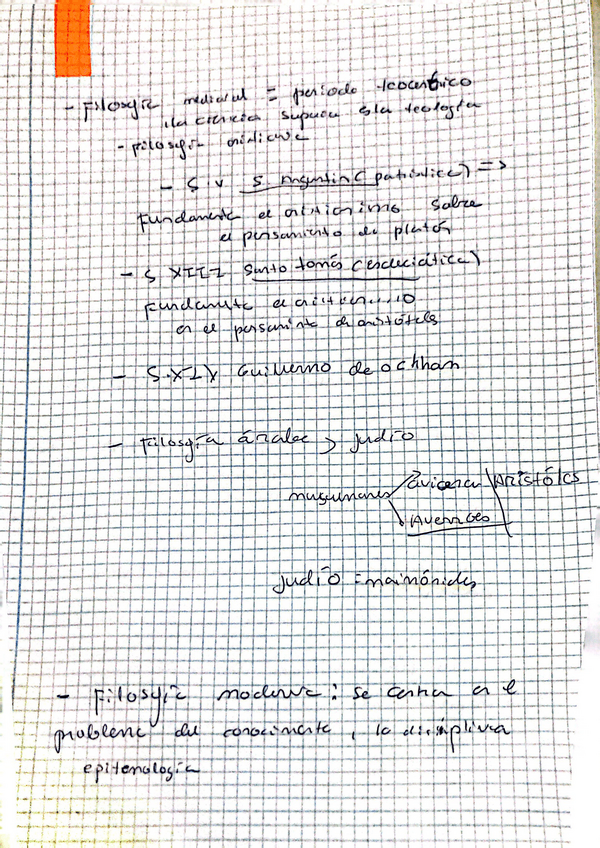 - Filosofía medieval = periodo teocéntrico
, la ciencia suprema es la teología
- Filosofía cristiana
- S V S. Agustín (patrística) =>
Fundamenta el cristianismo sobre
el pensamiento de platón
- S XIII Santo tomás (escolástica)
Fundamenta el cristianismo
en el pensamiento de aristóteles
- S. XIV Guillermo de ockham
- Filosofía árabe y judío
musulmanes Avicena Aristóteles
Averroes
judío = maimónides
- Filosofía moderna: se centra en el
problema del conocimiento, la disciplina
epitemología